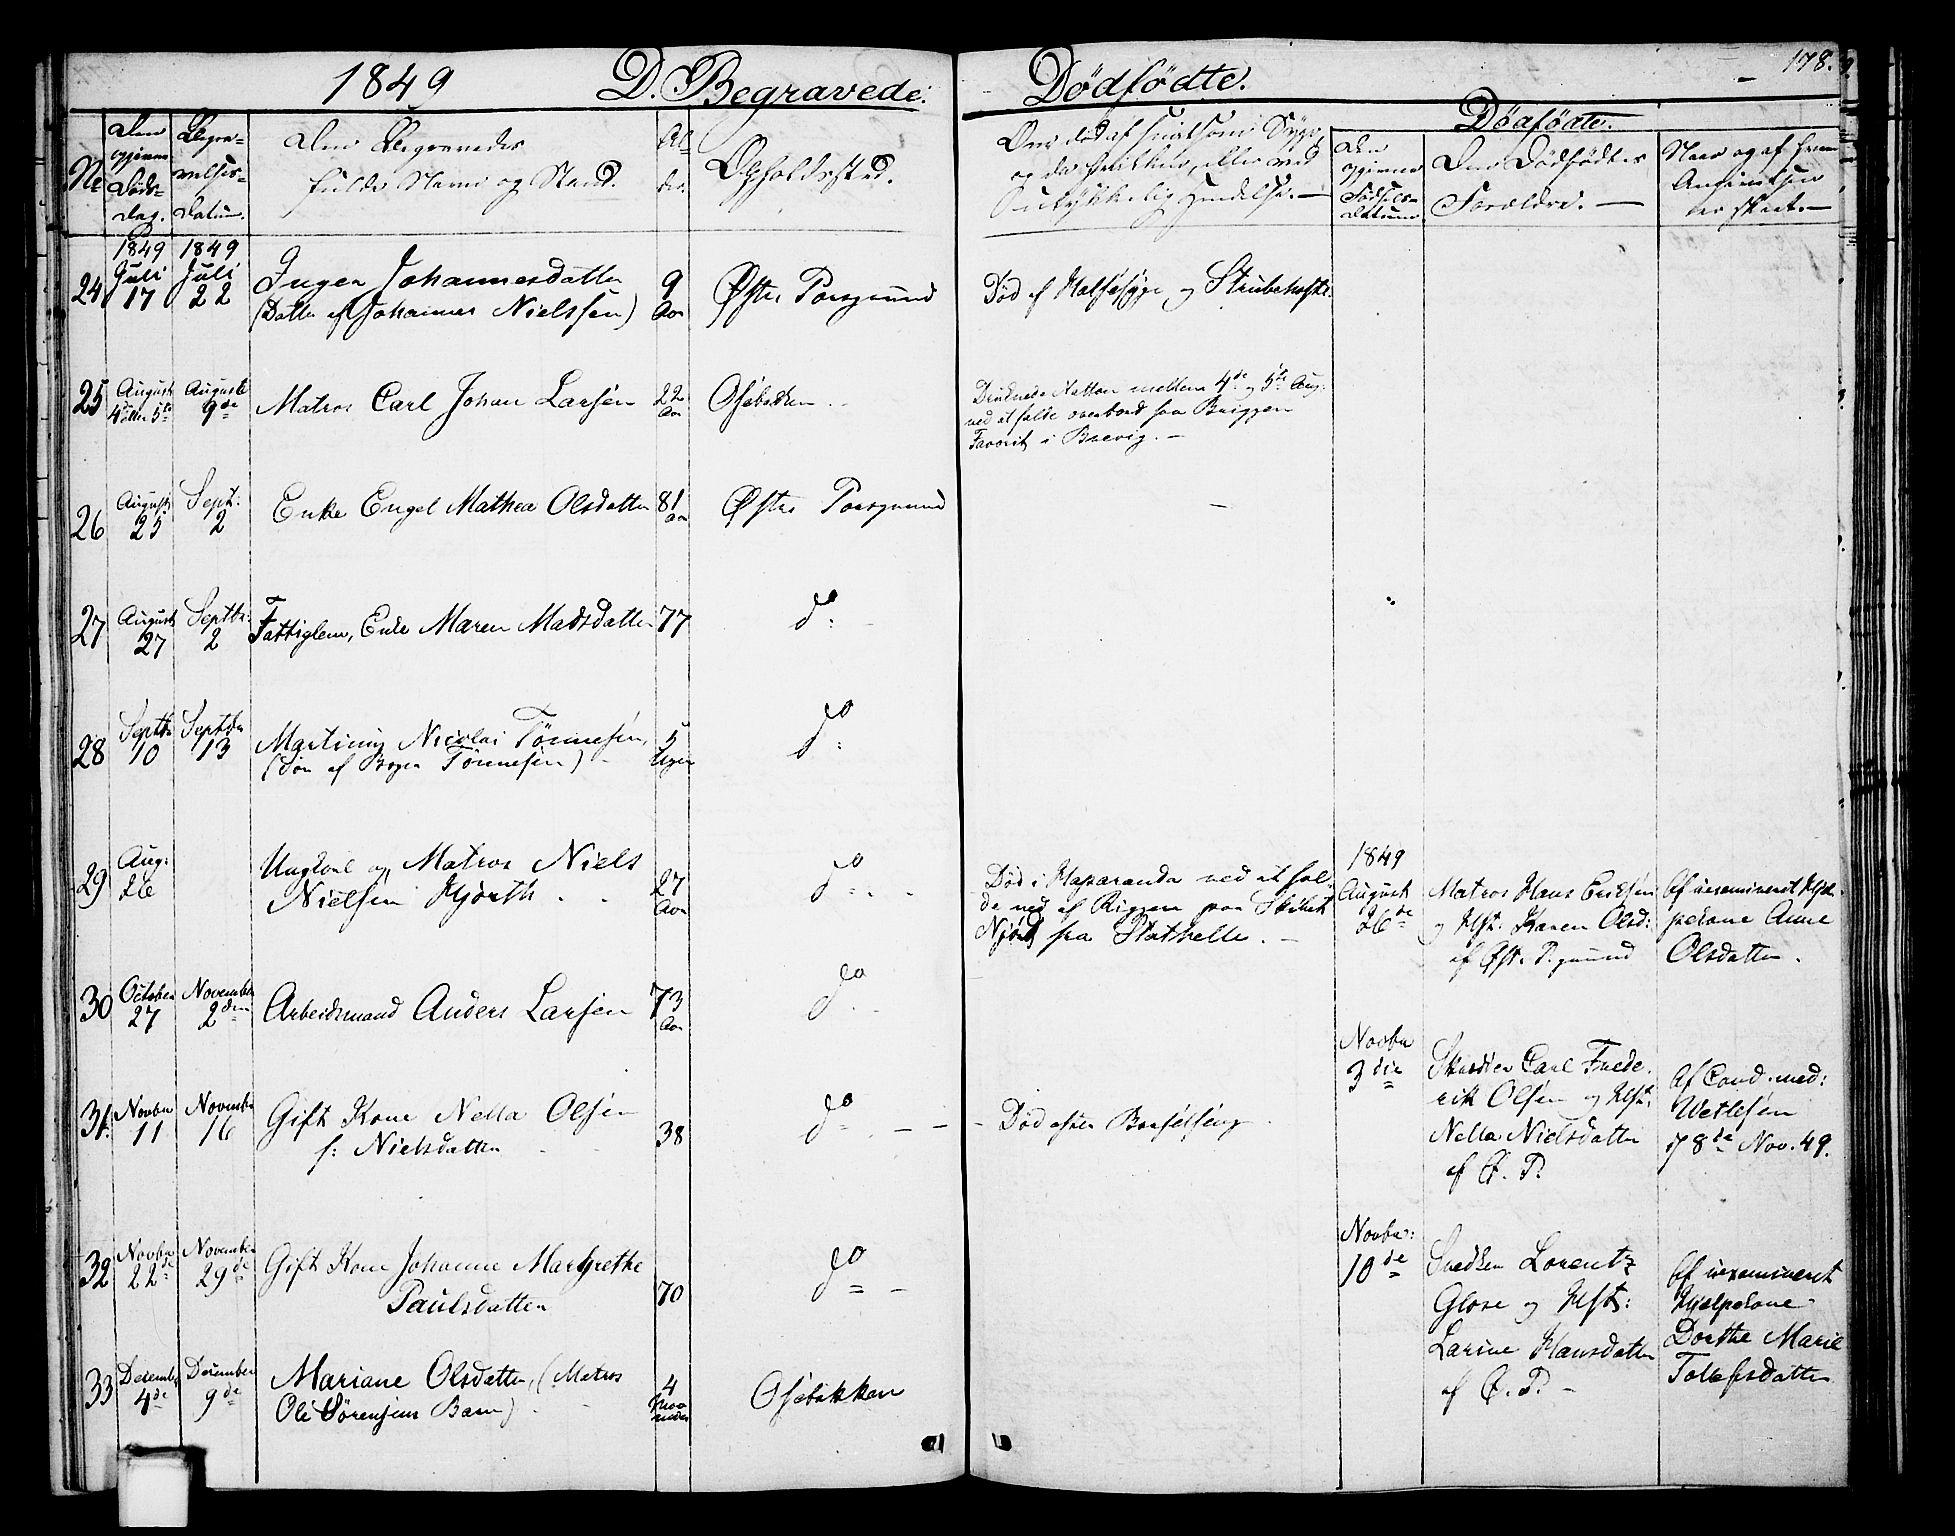 1849 D. Begravede.
Dødfødte.
178.
Nr
Den opgivne Døds-Dag.
Begravelses-Datum.
Den Begravedes fulde Navn og Stand.
Alder.
Opholdssted.
Dødfødte.
Den opgivne Fødsels-Datum
Den Dødfødtes Forældre.
Naar og af hvem Anmeldelsen er skeet.
24
1849 Juli 17
1849 Juli 22
Inger Johannesdatter
(Datter af Johannes Nielssen)
9 Aar
Øster Porsgrund
Død af Halssyge og Strubehoste.
25
August 4de eller 5te
Auguste 9de
Matros Carl Johan Larsen
22 Aar
Osebakken
Druknede Natten mellem 4de og 5te Aug:
ved at falde overbord fra Briggen
Favorit i Brevig. -
26
August 25
Sept: 2
Enke Engel Mathea Olsdatter
81 Aar
Øster Porsgrund
-
27
August 27
Septbr: 2
Fattiglem, Enke Maren Madsdatter
77
do
28
Septbr 10
Septbr 13
Martinus Nicolai Tønnesen,
(Søn af Tønnesen)
5 Uger
do
29
Aug: 26
Ungkarl og Matros Niels
Nielsen Hjorth
27 Aar
do
Død i Haparanda ved at fal-
de ned af Riggen paa Skibet
Njørd fra Stathelle. -
1849
August 26de
Matros Hans Eriksen
og Hst. Karen Olsd:
af Øst. P.grund
Af uexamineret Hjæl-
pekone Anne
Olsdatter.
30
October 27
November 2den
Arbeidsmand Anders Larsen
73 Aar
do
31.
Novbr 11
Novembr 16
Gift Kone Nella Olsen
f: Nielsdatter
38
do
Død efter Barselseng
Novbr 3die
Carl Frede-
rik Olsen og Hst:
Nella Nielsdatter
af Ø. P.
Af Cand. med:
Wetlesen
d 8de Nov. 49.
32
Novbr 22de
November 29de
Gift Kone Johanne Margrethe
Paulsdatter
70
do
Novbr: 10de
Snedker Lorentz
Glose og Hst:
Larine Hansdatter
af Ø. P. -
Af uexamineret
Hjælpekone
Dorthe Marie
Tollefsdatter
33
December 4de
December 9de
Mariane Olsdatter, (Matros
Ole Sørensens Barn)
4 Maaneder
Osebakken